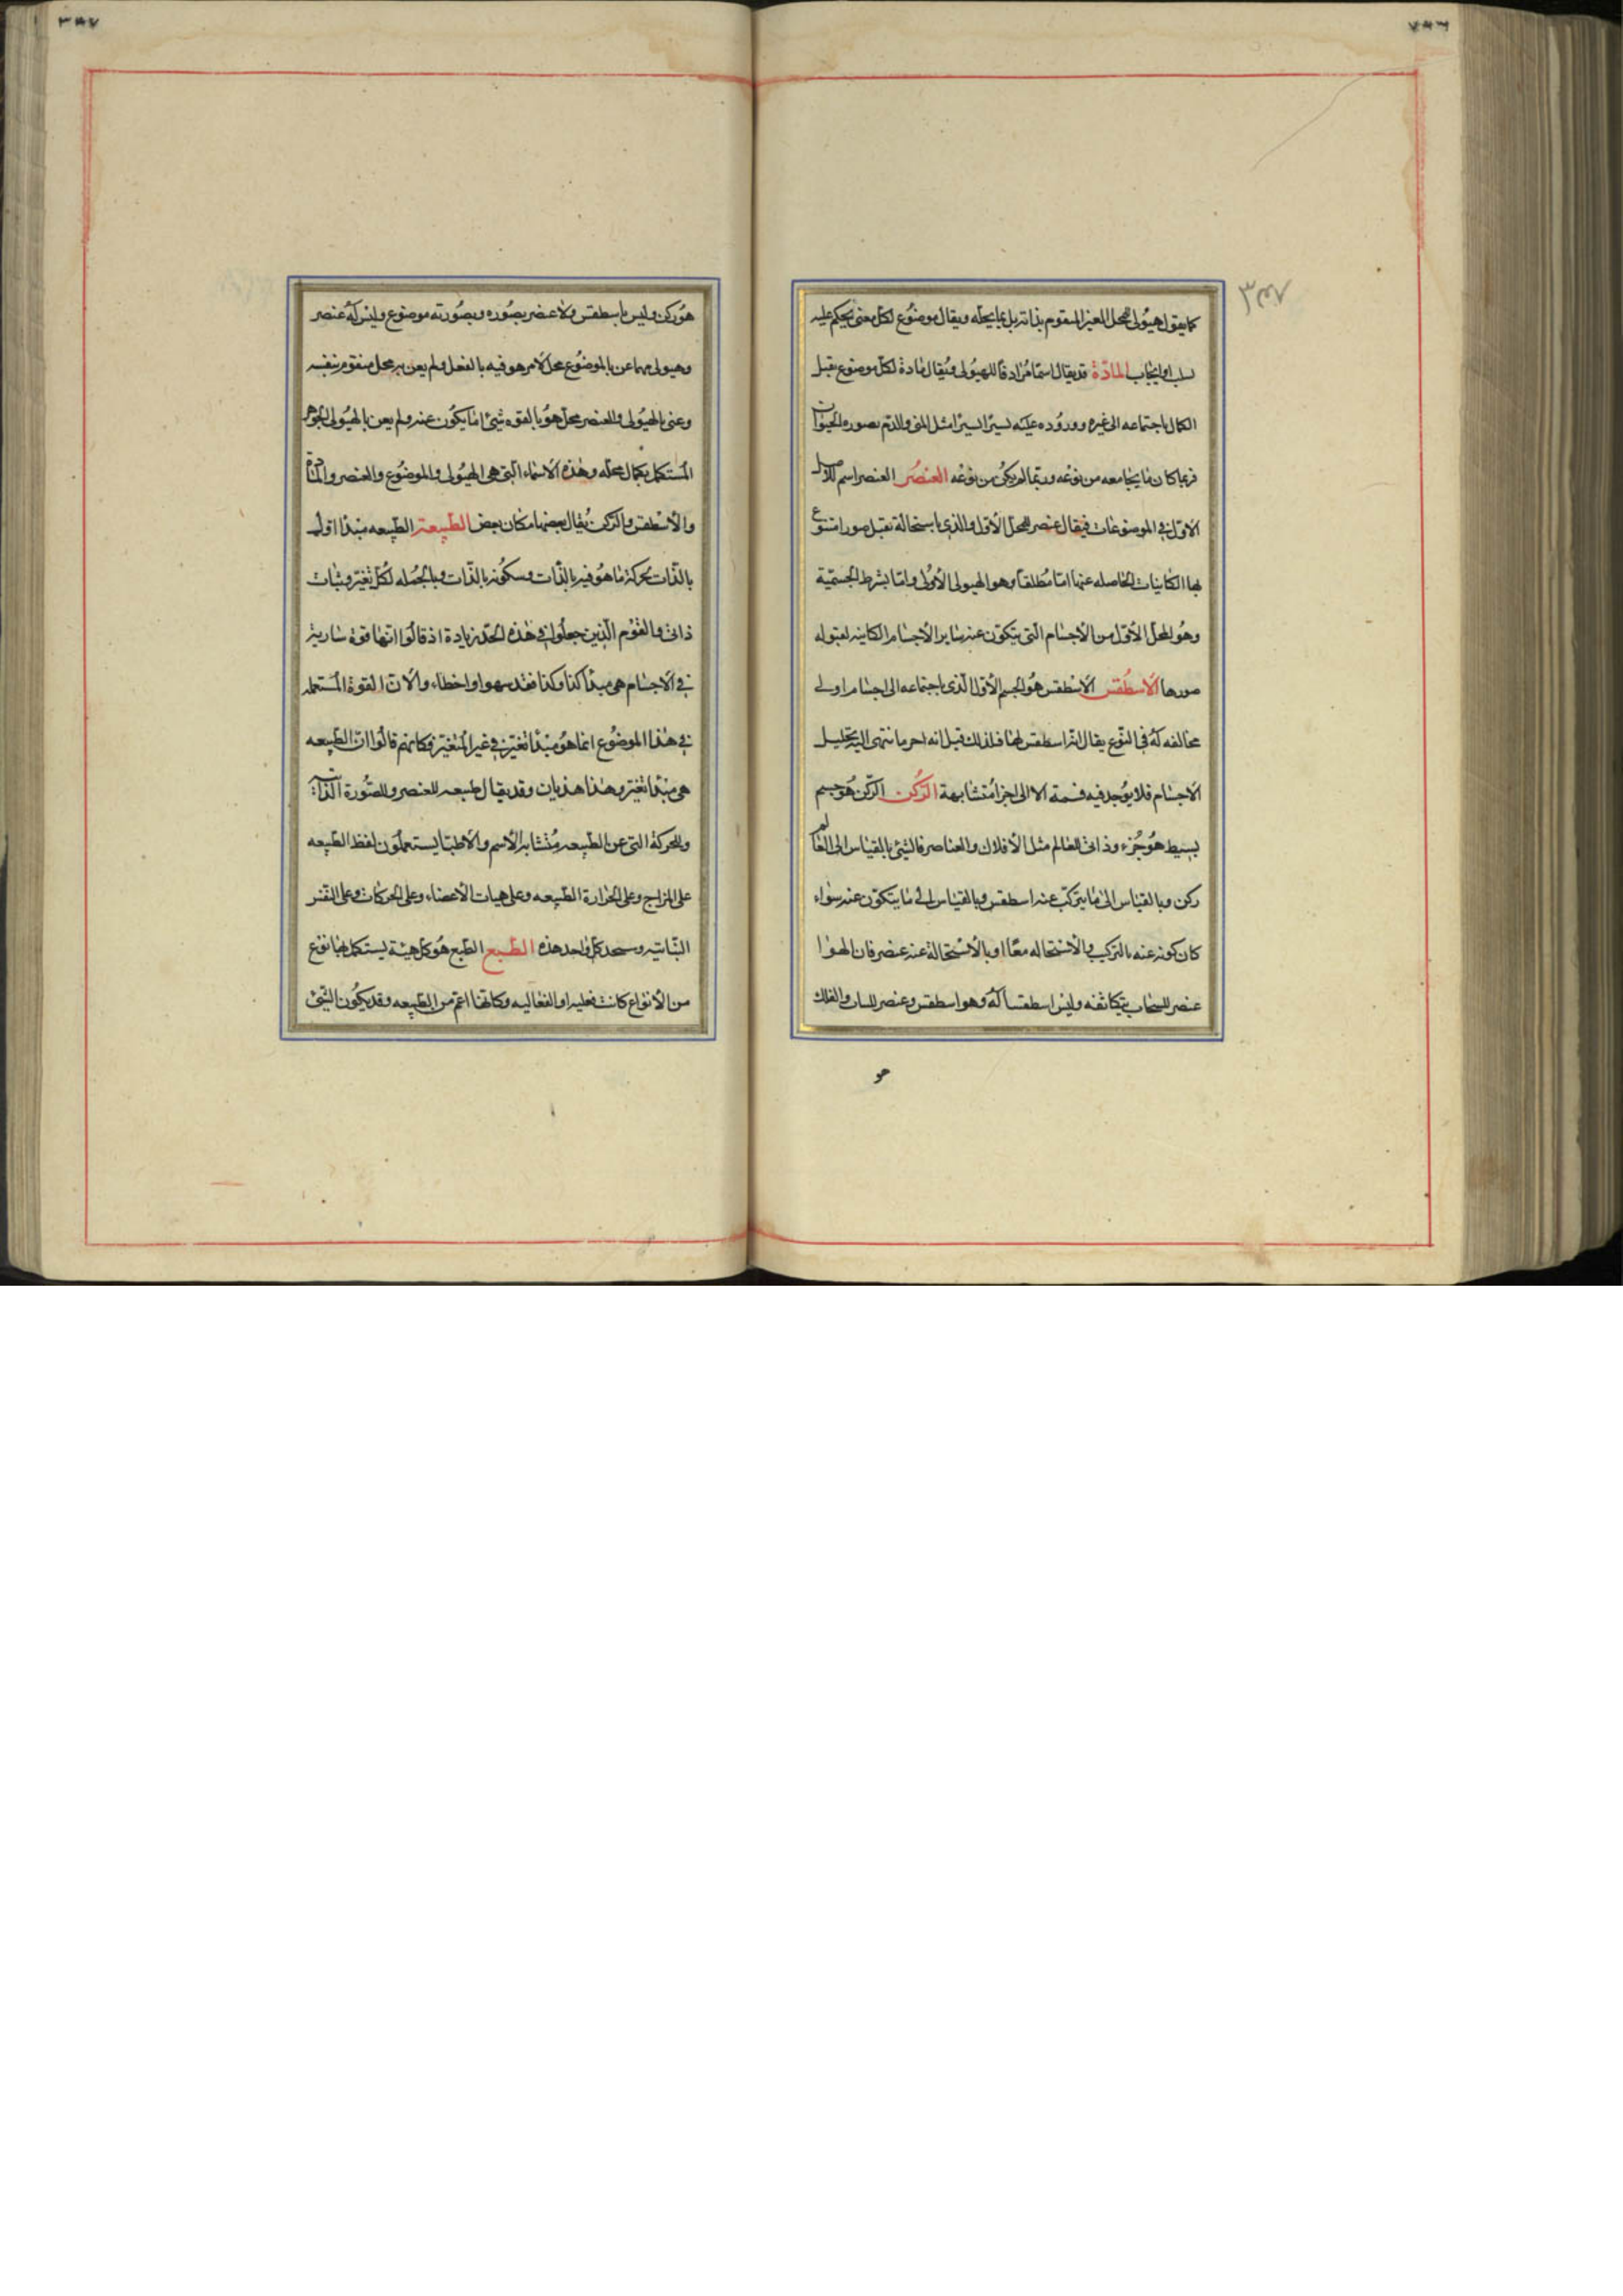 كما يقول هيولى للمحل الغير المتقوم بذاته بل بما يحله ويقال موضوع لكل معنى يحكم عليه
سلب او ايجاب المادّة قد يقال اسمًا مُرادفًا للهيولى ويُقال مادة لكل موضوع يقبل
الكمال باجتماعه الى غيره ووروده عليه يسيرًا يسيرًا مثل المنى والدّم بصوره الحيوان
فربما كان ما يجامعه من نوعه وربّما لم يكن من نوعه العنصُر العنصر اسم للاصل
الاوّل في الموضوعات فيقال عنصر للمحل الأوّل والذي باستحالة تقبل صورا تتنوّع
بها الكاينات الحاصله عنها امّا مُطلقًا وهو الهيولى الأولى وامّا بشرط الجسميّة
وهُو المحل الأوّل من الأجسام التى يتكوّن عنه ساير الأجسام الكاينه لقبوله
صورها الاسطُقس الاسْطقس هُو الجسم الأوّل الّذى باجتماعه الى اجسام اولى
مخالفه لهُ فى النّوع يقال انه اسطقس لها فلذلك قيل انه اخر ما ينتهى اليه تحليل
الاجسام فلا يوُجد فيه قسمة الا الى اجزا مُتشابهة الرُكن الركن هُو جسم
بسيط هُو جُزء ذاتى للعالم مثل الأفلاك والعناصر فالشئ بالقياس الى العالم
ركن وبالقياس الى ما يتركّب عنه اسطقس وبالقياس الى ما يتكوّن عنه سَواء
كان كونه عنه بالتركيب والاستحاله معًا او بالاستحالة عنه عنصر فان الهوا
عنصر للسحاب بتكاثفه وليس اسطقسا لهُ وهو اسطقس وعنصر للنبات والفلك
هو
هُو ركن وليس باسطقس ولا عنصر بصُوره وبصُورته موضوع وليس لهُ عنصر
وهيولى مهما عن بالموضُوع محل لأمر هو فيه بالفعل ولم يعن به محل متقوم بنفسه
وعنى بالهيُولى والعنصر محل هوُ بالقوه شئ اما يكُون عنه ولم يعن بالهيُولى الجوهر
المستكمل بكمال محله وهذه الاسماء التى هى الهيُولى والموضُوع والعنصر والمادّة
والأسْطقس والرّكن يُقال بعضها مكان بعض الطبيعة الطبيعه مبدا اوّل
بالذّات لحركة ما هُو فيه بالذّات وسكونه بالذّات وبالجُمله لكُل تغيّر وثبات
ذاتى والقوْم الّذين جعلوا فى هٰذه الحدّ زيادة اذ قالُوا انّها قوة سارية
في الاجسام هى مبدأ كذا وكذا فقد سهوا واخطاء والان القوة المستعمله
في هذا الموضُوع انما هُو مبدأ تغيّر في غير المُتغيّر فكانهُم قالُوا انّ الطبيعه
هى مبدأ تغيّر وهذا هذيان وقد يقال طبيعه للعنصر وللصُّورة الذّاتية
وللحركة التى عن الطبيعه بمُتشابه الاسم والأطبّا يستعملُون لفظ الطبيعه
على المزاج وعلى الحرارة الطبيعه وعلى هيات الأعضاء وعلى الحركات وعلى النفس
النّباتيه وسنحد كل واحد هذه الطبع الطبع هُو كل هيئة يستكمل بها نوع
من الأنواع كانت فعليه او انفعاليه وكانها اعمّ من الطبيعه وقد يكُون الشئ